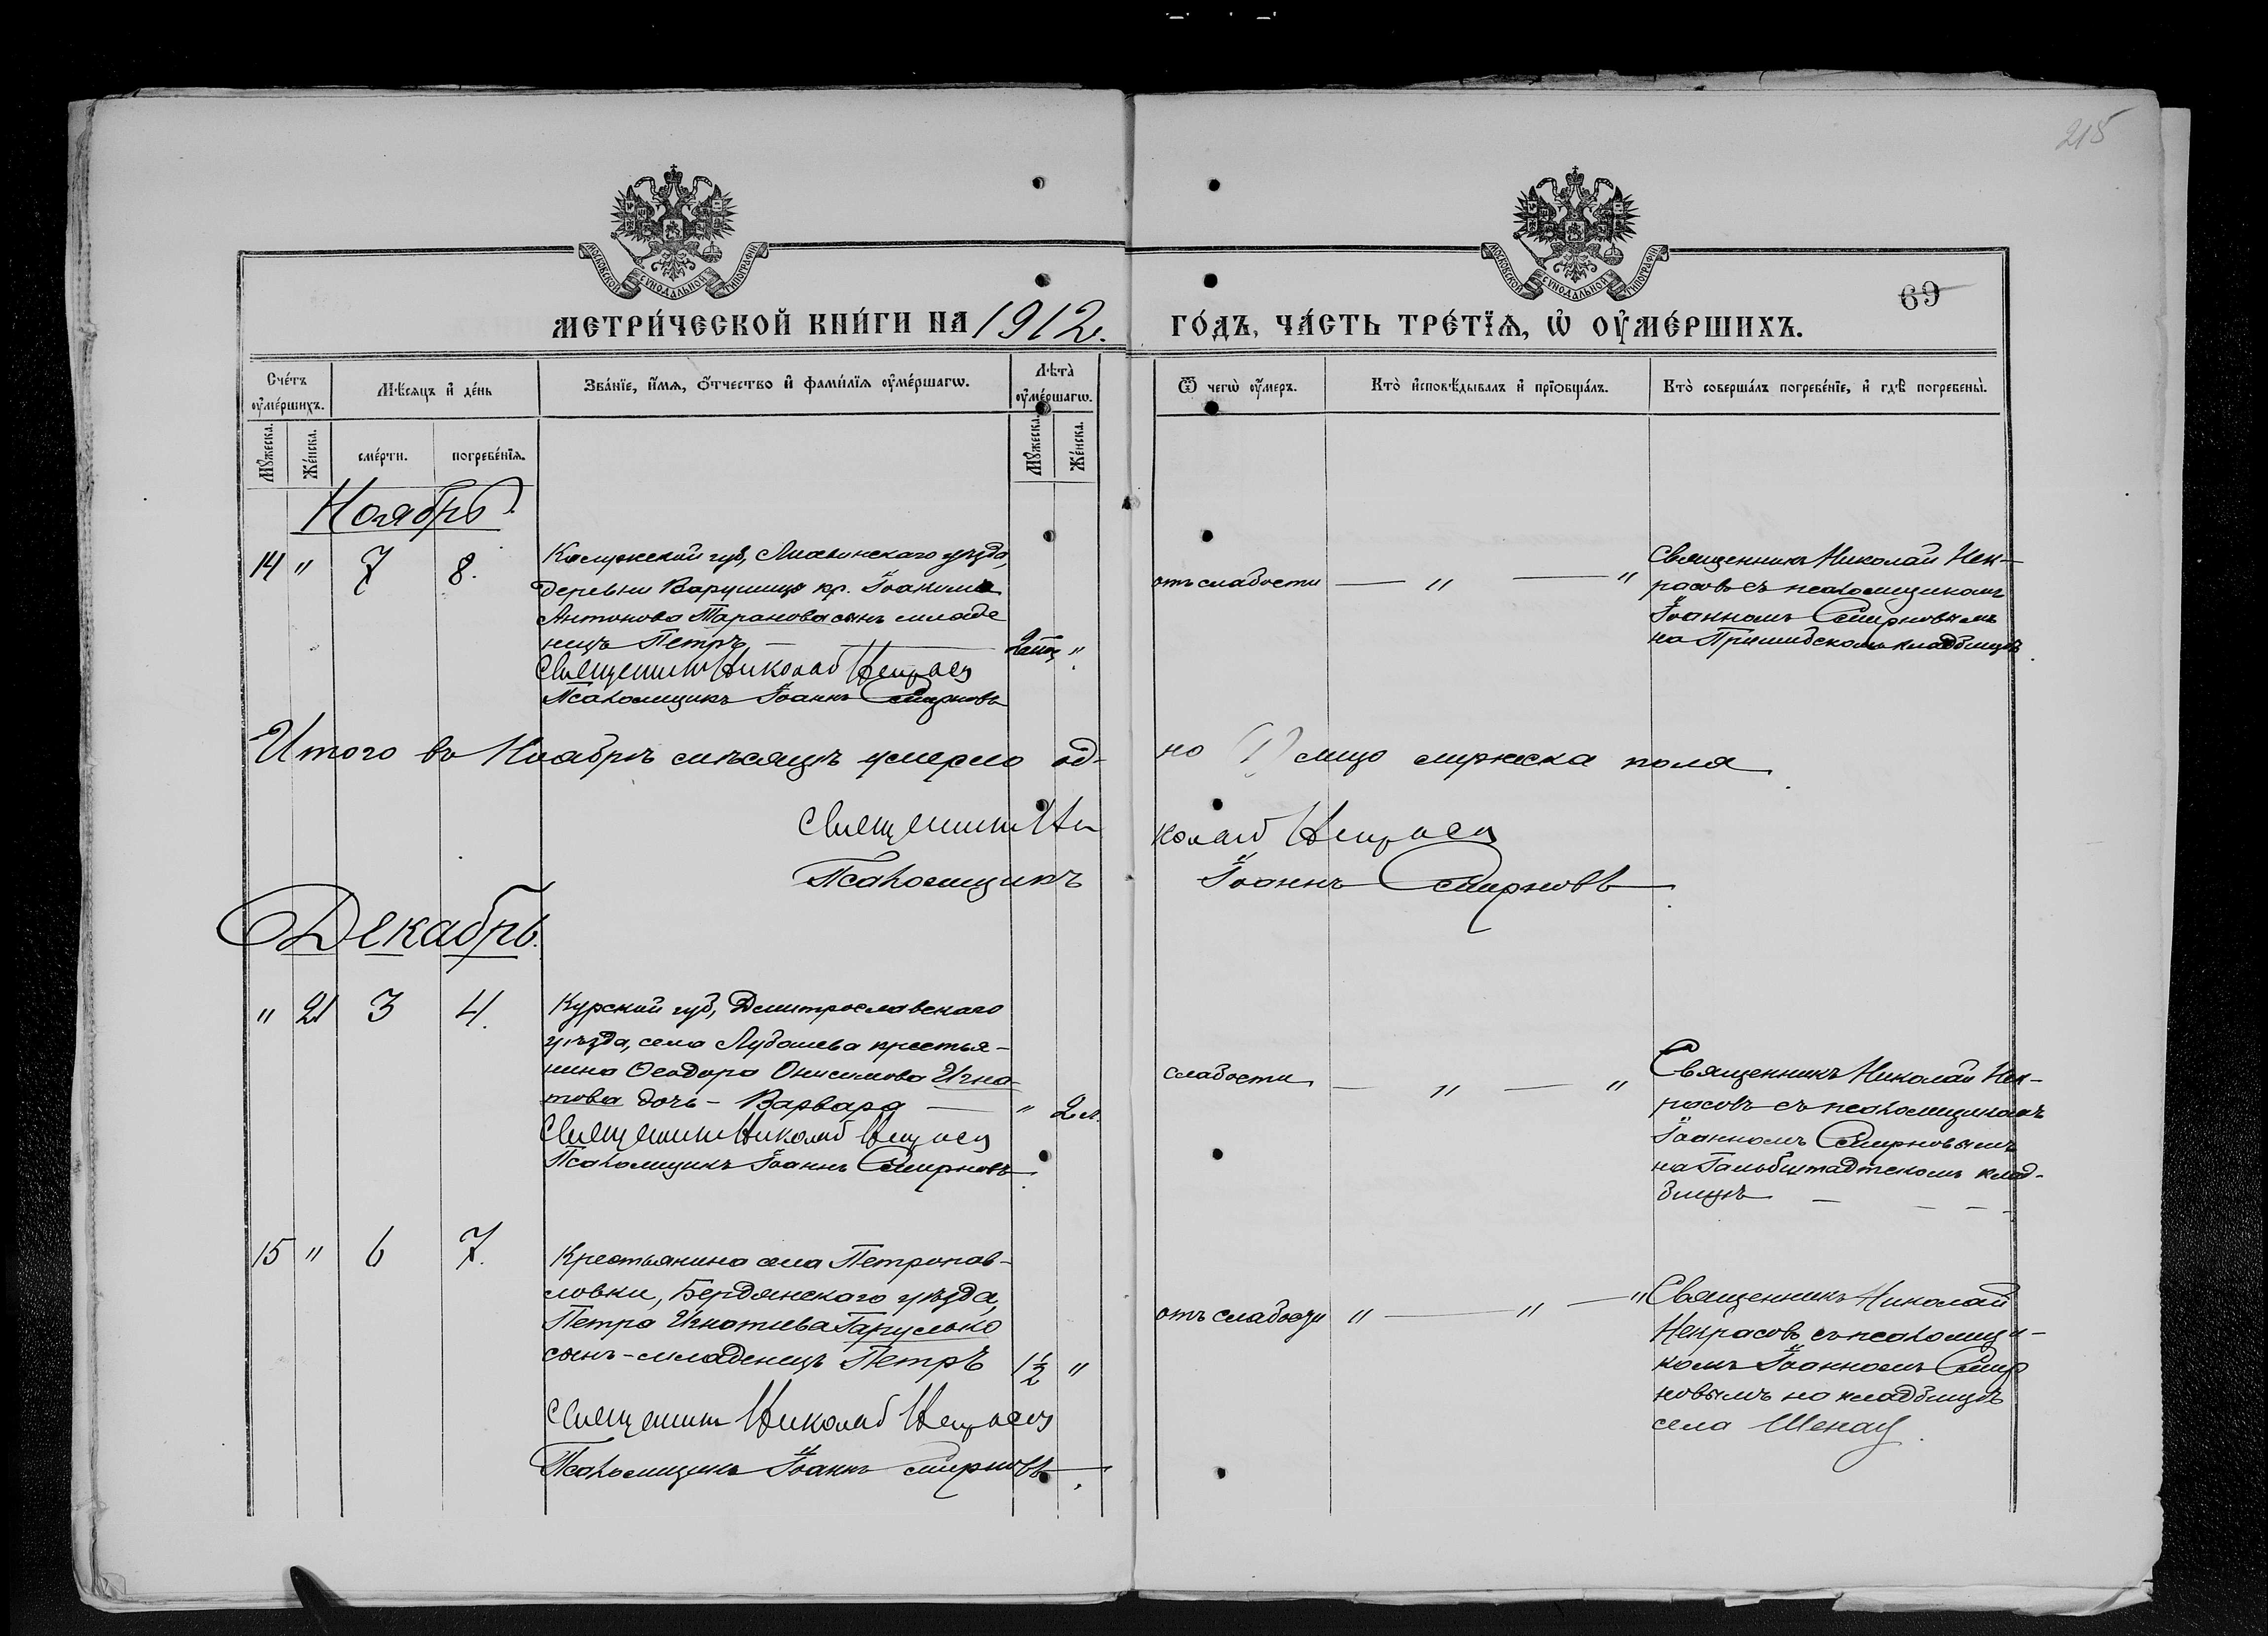 215
МОСКОВСКОЙ СѴНОДАЛЬНОЙ ТИПОГРАФІИ
МОСКОВСКОЙ СѴНОДАЛЬНОЙ ТИПОГРАФІИ
69
МЕТРИ́ЧЕСКОЙ КНИ́ГИ НА 1912 г.
ГО́ДЪ, ЧА́СТЬ ТРЕ́ТЇѦ, Ѡ҆ ОУ҆МЕ́РШИХЪ.
Сче́тъ оу҆ме́ршихъ.
Мѣ́сѧцъ и҆ де́нь
Зва́нїе, и҆́мѧ, ѻ҆́тчество и҆ фами́лїѧ оу҆ме́ршагѡ.
Лѣта̀ оу҆ме́ршагѡ.
Ѿ чегѡ̀ оу҆́меръ.
Кто̀ и҆сповѣ́дывалъ и҆ прїѡбща́лъ.
Кто̀ соверша́лъ погребе́нїе, и҆ гдѣ̀ погребены̀.
Мꙋ́жеска.
Же́нска.
сме́рти.
погребе́нїѧ.
Мꙋ́жеска.
Же́нска.
Ноябрь.
14 " 7 8.
Калужской губ, уѣзда,
деревни кр. Іоакима
Антонова Таранова сынъ младе
нецъ Петръ —
"
Священникъ Николай Некрасовъ
Псаломщикъ Іоаннъ Смирновъ
отъ слабости — " — "
Священникъ Николай Нек-
расовъ съ псаломщикомъ
Іоанномъ Смирновымъ
на Пришибскомъ кладбищѣ.
Итого въ Ноябрѣ мѣсяцѣ умерло од-
но (1) лицо мужеска пола.
Священникъ Ни
колай Некрасовъ
Псаломщикъ
Іоаннъ Смирновъ.
Декабрь.
" 21 3 4.
Курской губ, Дмитрославскаго
уѣзда, села Лубашева крестья-
нина Ѳеодора Онисимова Игна-
това дочь - Варвара —
" 2 м.
Священникъ Николай Некрасовъ
Псаломщикъ Іоаннъ Смирновъ.
слабости — " — "
Священникъ Николай Нек-
расовъ съ псаломщикомъ
Іоанномъ Смирновымъ
на Гальбштадтскомъ клад-
бищѣ — — — -
15 " 6 7.
Крестьянина села Петропав-
ловки, Бердянскаго уѣзда,
Петра Игнатиева Гарулько
сынъ-младенецъ Петръ
1½ "
Священникъ Николай Некрасовъ
Псаломщикъ Іоаннъ Смирновъ.
отъ слабости " — " — "
Священникъ Николай
Некрасовъ съ псаломщи-
комъ Іоанномъ Смир
новымъ на кладбищѣ
села Шенау.